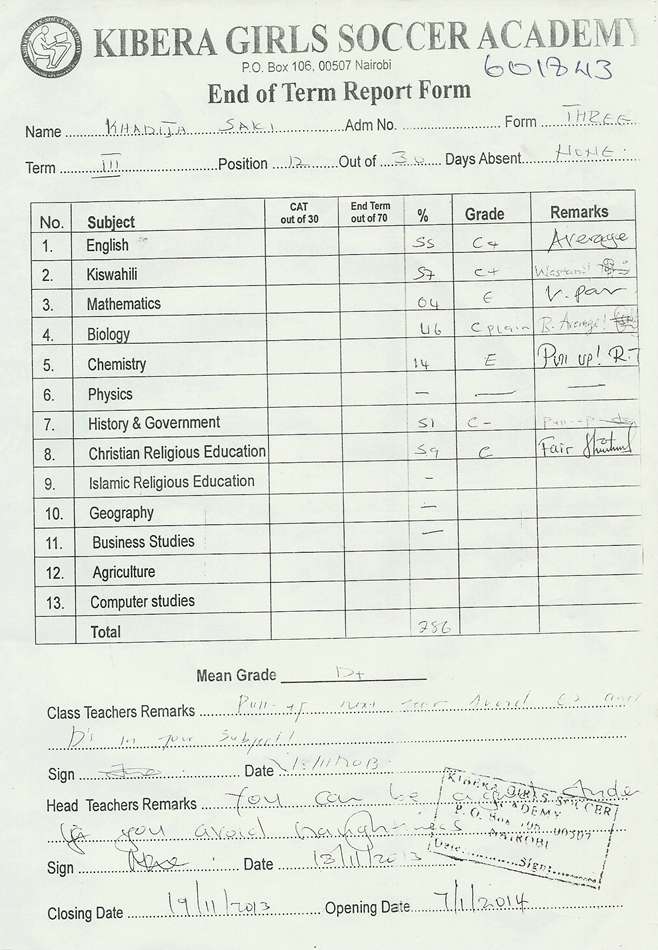 KIBERA GIRLS SOCCER ACADEMY
P.O. Box 106, 00507 Nairobi
601743
End of Term Report Form
Name KHADIJA SAKI Adm No. Form THREE
Term III Position 12 Out of 30 Days Absent NONE
No. Subject CAT out of 30 End Term out of 70 % Grade Remarks
1. English 55 C+ Average
2. Kiswahili 57 C+
3. Mathematics 04 E
4. Biology 46 C plain B. Average!
5. Chemistry 14 E Pull up!
6. Physics — — —
7. History & Government 51 C- Pull-up
8. Christian Religious Education 59 C Fair
9. Islamic Religious Education -
10. Geography —
11. Business Studies —
12. Agriculture
13. Computer studies
Total 286
Mean Grade D+
Class Teachers Remarks Pull-up next term Avoid Es and
D's in your subject!
Sign Date 18/11/2013
Head Teachers Remarks You can be a
if you avoid naughtiness
Sign Date 18/11/2013
KIBERA GIRLS SOCCER
ACADEMY
P. O. Box 00507
NAIROBI
Date: Sign:
Closing Date 19/11/2013 Opening Date 7/1/2014